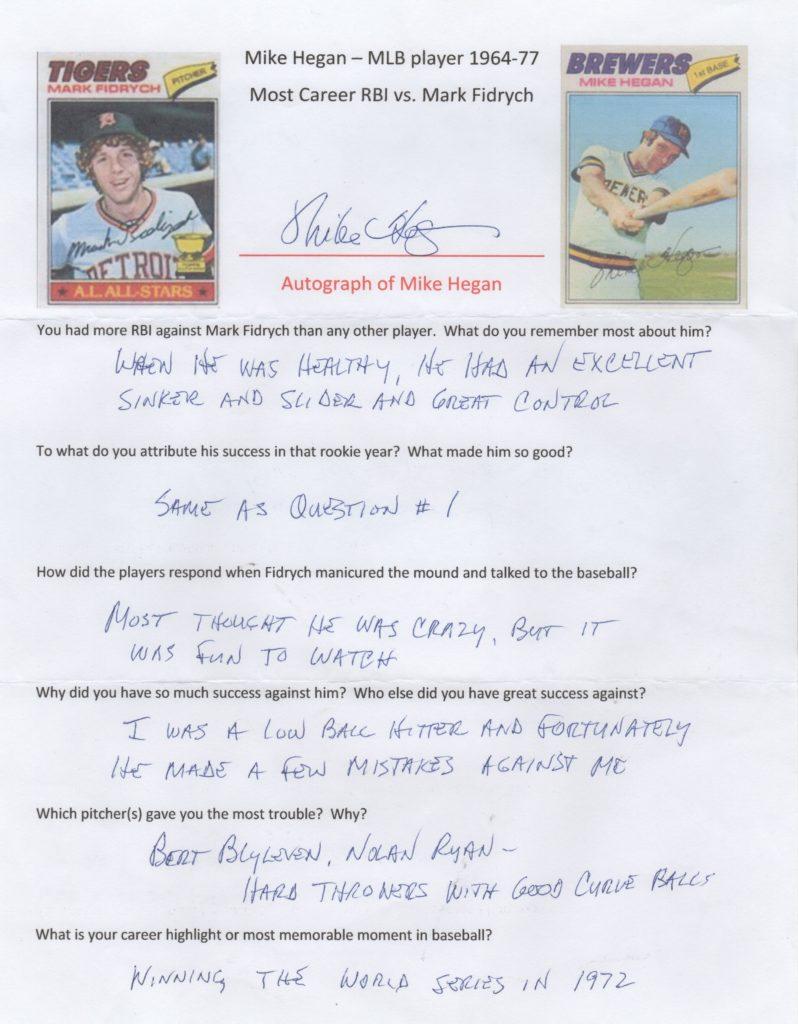 Mike Hegan – MLB player 1964-77
Most Career RBI vs. Mark Fidrych
TIGERS
MARK FIDRYCH
PITCHER
Mark Fidrych
DETROIT
A.L. ALL-STARS
BREWERS
MIKE HEGAN
1st BASE
Mike Hegan
Mike Hegan
Autograph of Mike Hegan
You had more RBI against Mark Fidrych than any other player. What do you remember most about him?
WHEN HE WAS HEALTHY, HE HAD AN EXCELLENT
SINKER AND SLIDER AND GREAT CONTROL
To what do you attribute his success in that rookie year? What made him so good?
SAME AS QUESTION # 1
How did the players respond when Fidrych manicured the mound and talked to the baseball?
MOST THOUGHT HE WAS CRAZY, BUT IT
WAS FUN TO WATCH
Why did you have so much success against him? Who else did you have great success against?
I WAS A LOW BALL HITTER AND FORTUNATELY
HE MADE A FEW MISTAKES AGAINST ME
Which pitcher(s) gave you the most trouble? Why?
BERT BLYLEVEN, NOLAN RYAN –
HARD THROWERS WITH GOOD CURVE BALLS
What is your career highlight or most memorable moment in baseball?
WINNING THE WORLD SERIES IN 1972